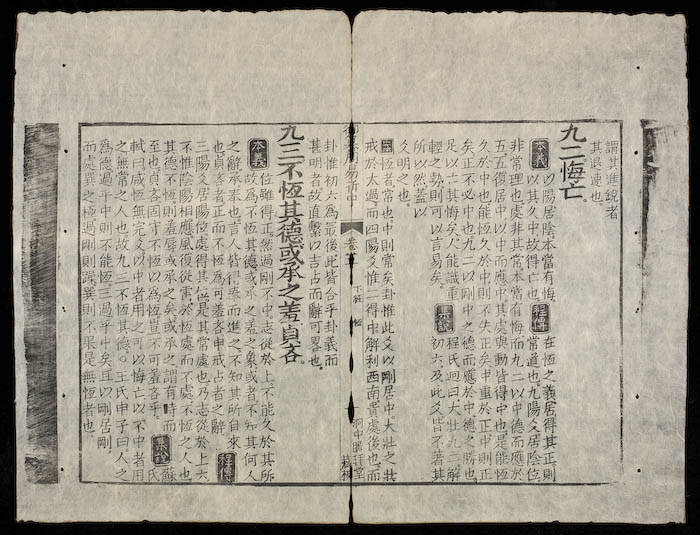 謂其進銳者
其退速也。
九二悔亡。
本義 以陽居陰本當有悔 程傳 在恆之義居得其正則
以其久中故得亡也 常道也九陽爻居陰位
非常理也處非其常本當有悔而九二以中德而應於
五五復居中以中而應中其處與動皆得中也是能恆
久於中也能恆久於中則不失正矣中重於正中則正
矣正不必中也九二以剛中之德而應於中德之勝也
足以亡其悔矣人能識重 集說 程氏迥曰大壯九二解
輕之勢則可以言易矣。 初六及此爻皆不著其
所以然蓋以
爻明之也。
恆者常也中則常矣卦惟此爻以剛居中大壯之壯
戒於太過而四陽爻惟二得中解利西南貴處後也而
周易折中
下經 恆
卦惟初六爲最後此皆合乎卦義而
甚明者故直繫以吉占而辭可畧也。
九三不恆其德或承之羞貞吝。
本義 位雖得正然過剛不中志從於上不能久於其所
故為不恆其德或承之羞之象或者不知其何人
之辭承奉也言人皆得奉而進之不知其所自來
也貞吝者正而不恆為可羞吝申戒占者之辭 程傳
三陽爻居陽位處得其位是其常處也乃志從於上六
不惟陰陽相應風復從雷於恆處而不處不恆之人也
其德不恆則羞辱或承之矣或承之謂有時而
至也貞吝固守不恆以為恆豈不可羞吝乎 集說 蘇氏
軾曰咸恆無完爻以中者用之可以悔亡以不中者用
之無常之人也故九三不恆其德 王氏申子曰人之
為德過乎中則不能恆三過乎中矣且以剛居剛
而處巽之極過剛則躁巽則不果是無恆者也